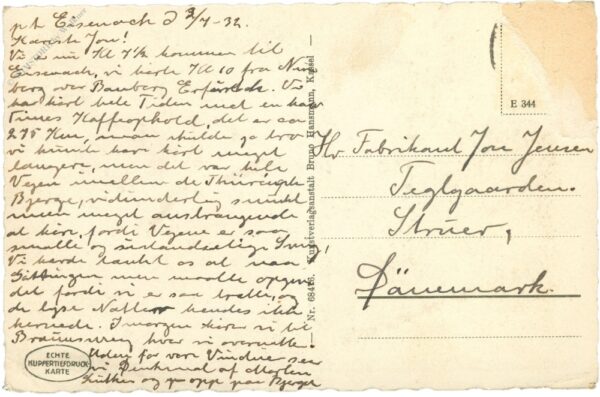 pt Eisenach d 2/7-32.
Kæreste Jon!
Vi er nu Kl 7½ kommen til
Eisenach, vi kørte Kl 10 fra Nürn
berg over Bamberg Erfurt. Vi
har kørt hele Tiden med en halv
Times Kaffeophold, det er ca
275 Km, man skulde jo tro
vi kunde have kørt meget
længere, men det var hele
Vejen imellem de Thüringske
Bjerge, vidunderlig smukt
men meget anstrængende
at køre, fordi Vejene er saa
smalle og
Vi havde tænkt os at naa
Göttingen men maatte opgive
det fordi vi er saa trætte, og
de lyse Nætter kendes ikke
hernede. I morgen kører vi til
Braunsweig hvor vi overnatter!
Uden for vore Vinduer ser
vi Denkmal af Morten
Luther og op paa Bjerget
ECHTE
KUPFERTIEFDRUCK-
KARTE
Nr. 68416. Kunstverlagsanstalt Bruno Hansmann, Kassel
E 344
Hr Fabrikant Jon Jensen
Teglgaarden.
Struer,
Dänemark.